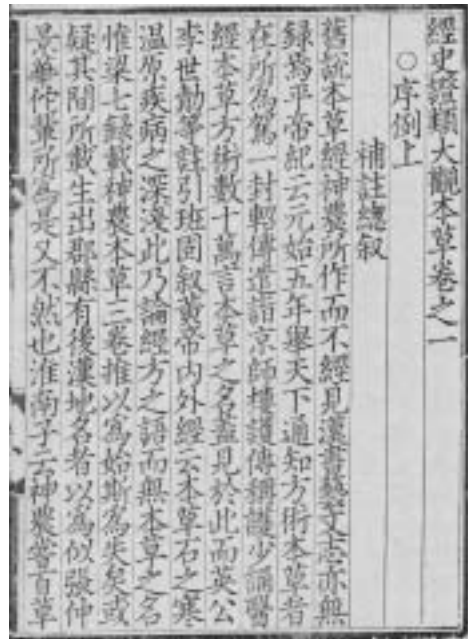 經史證類大觀本草卷之一
○序例上
補註總叙
舊說本草經神農所作而不經見漢書藝文志亦無
録焉平帝紀云元始五年舉天下通知方術本草者
在所為駕一封軺傳遣詣京師樓護傳稱護少誦醫
經本草方術數十萬言本草之名蓋見於此而英公
李世勣等註引班固叙黄帝内外經云本草石之寒
温原疾病之深淺此乃論經方之語而無本草之名
惟梁七録載神農本草三卷推以為始斯為失矣或
疑其間所載生出郡縣有後漢地名者以為似張仲
景華佗輩所為是又不然也淮南子云神農嘗百草